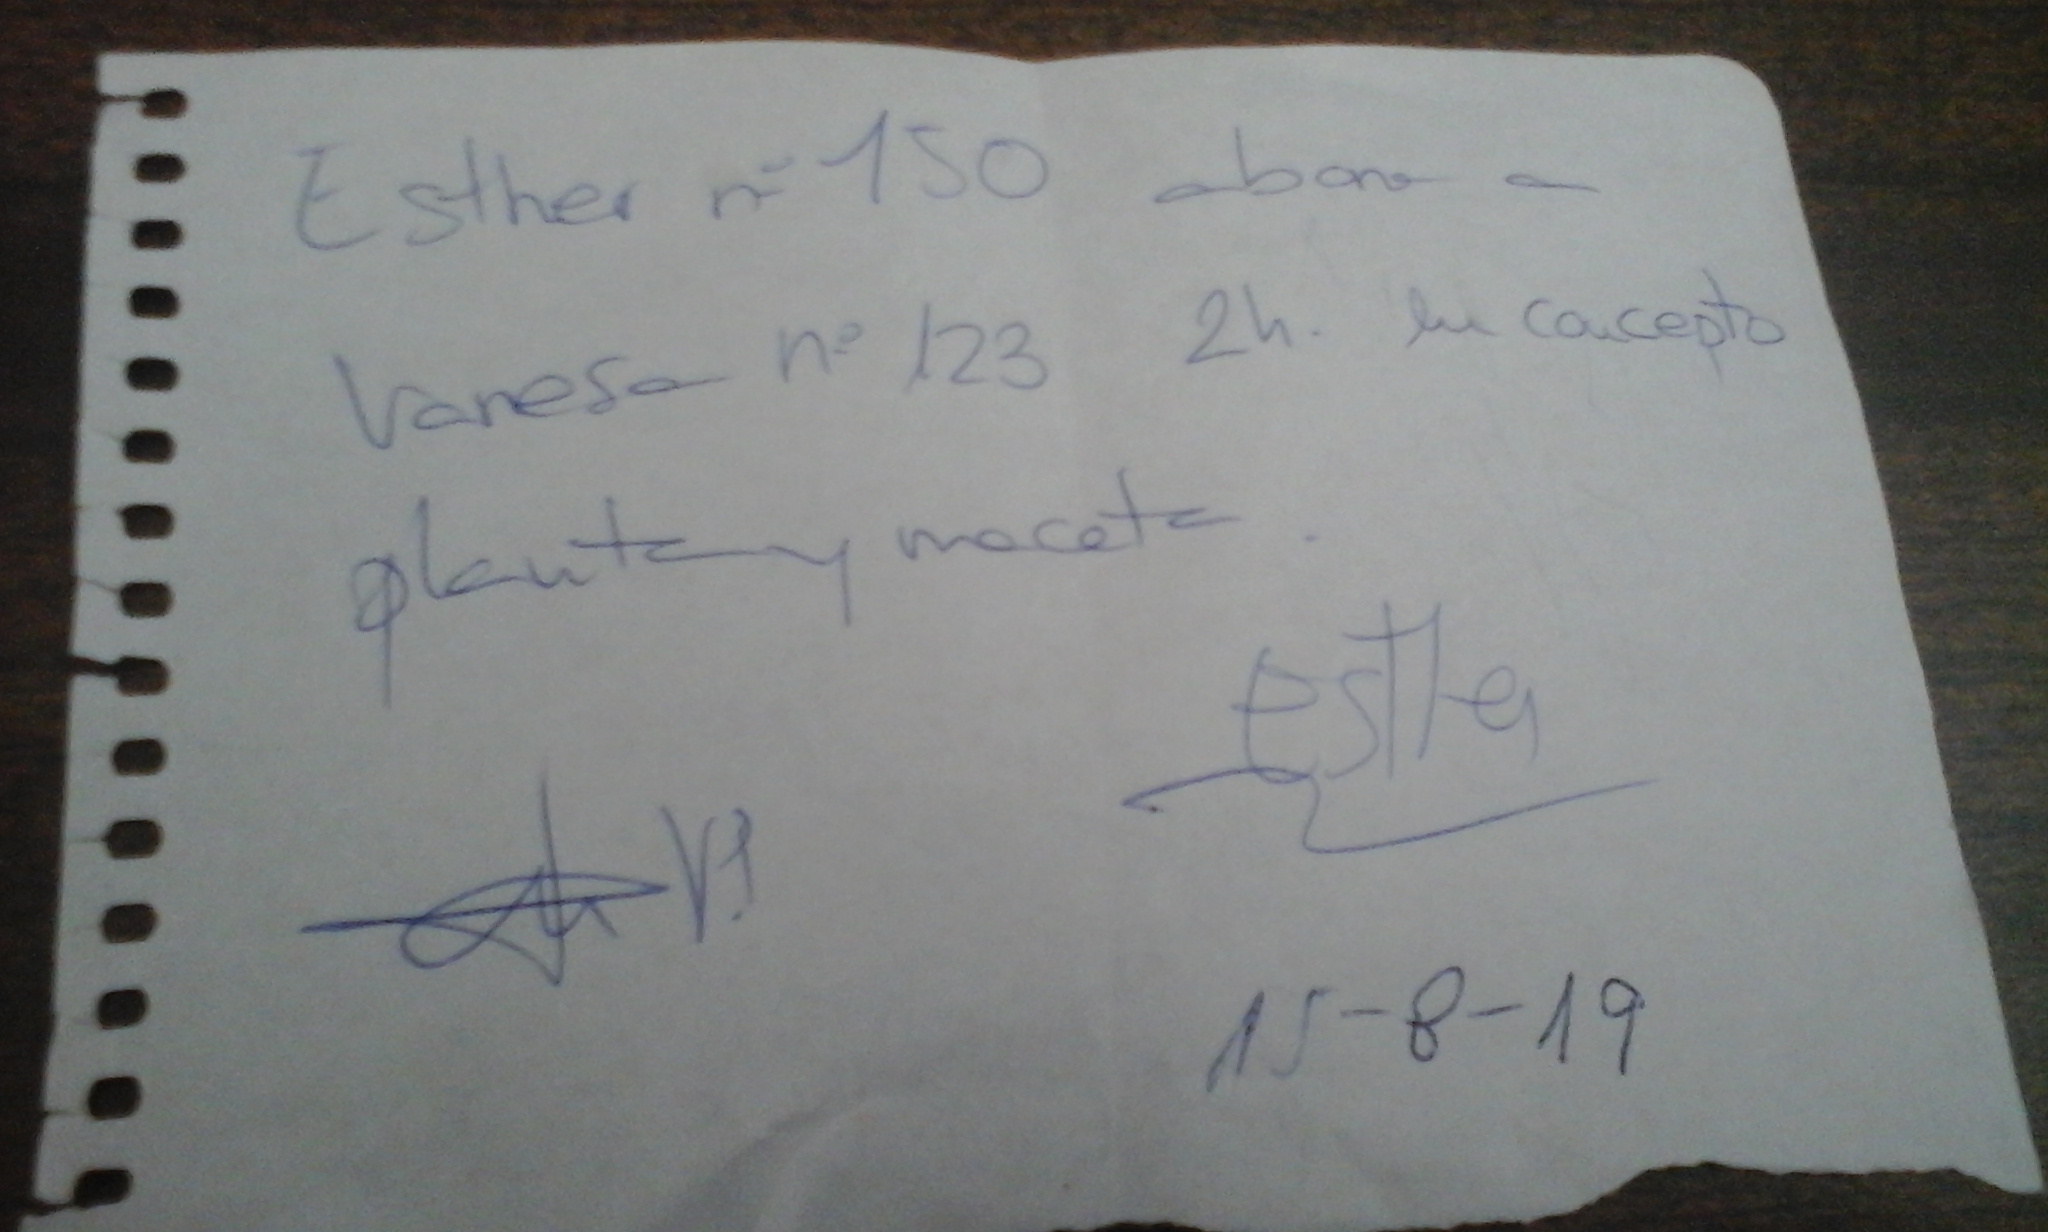 Esther nº 150 abona a
Vanesa nº 123 2h. en concepto
planta y maceta.
Esther
15-8-19